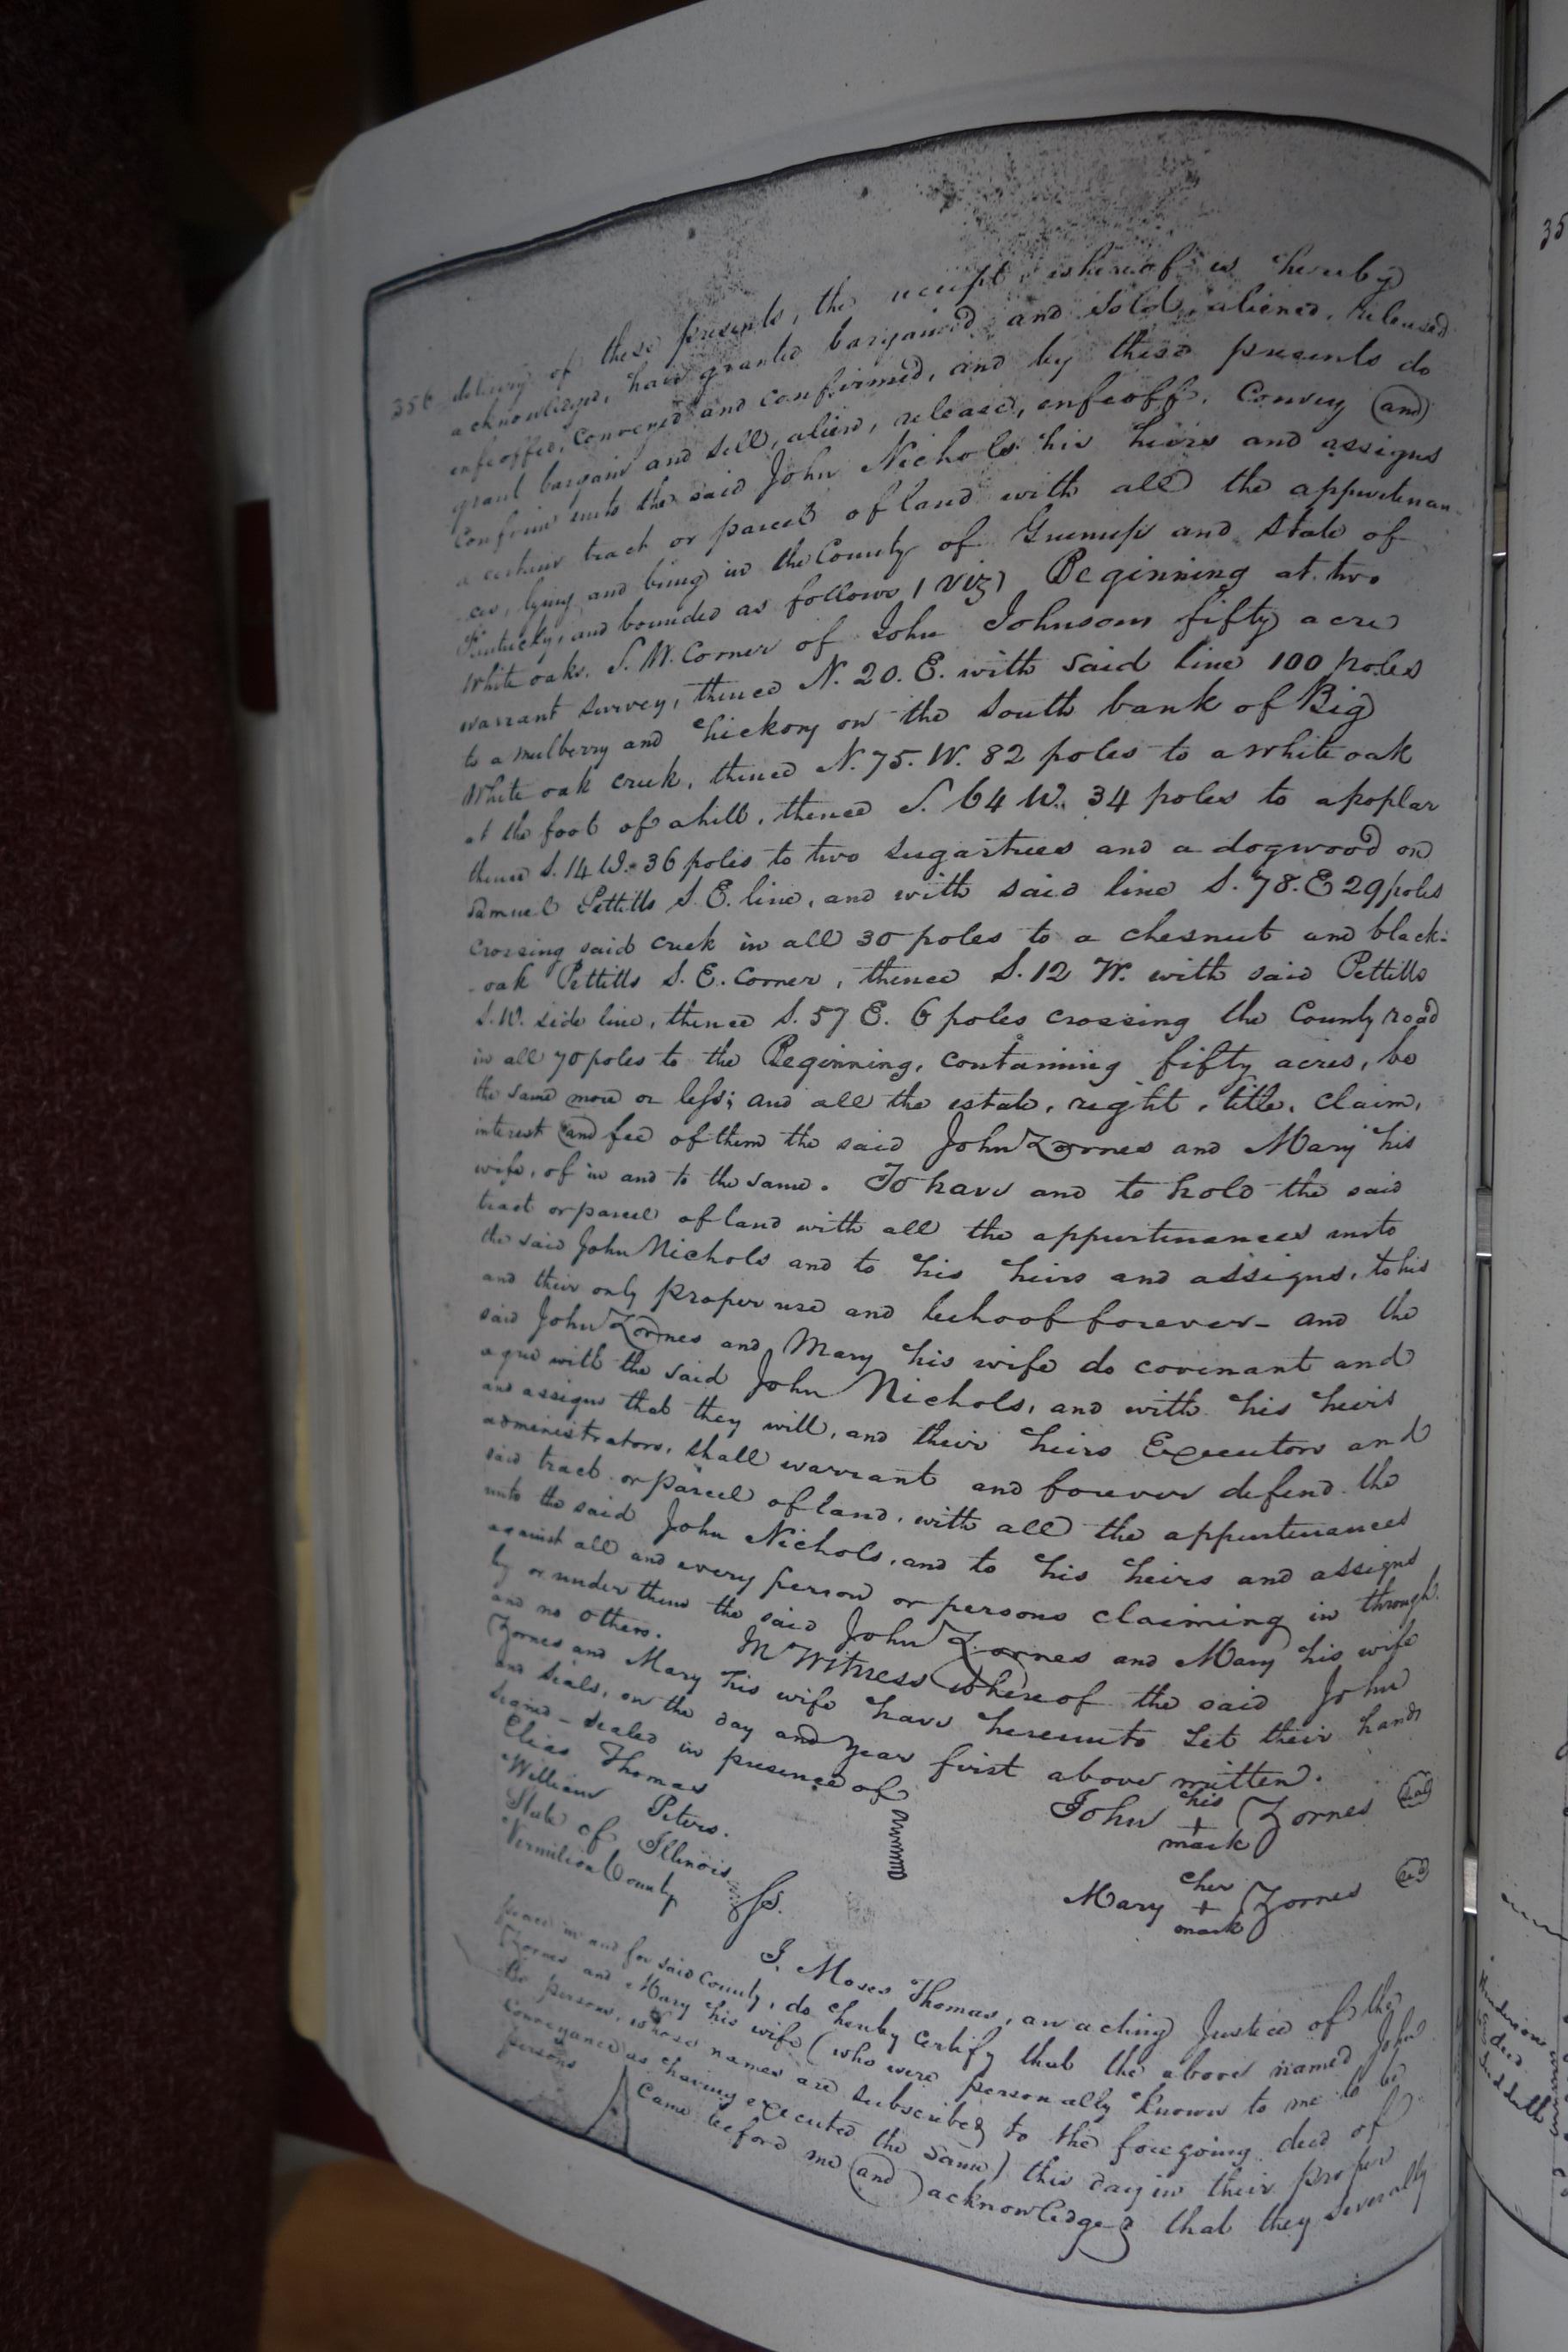 356 delivery of these presents, the receipt whereof is hereby
acknowledged, have granted bargained and sold, aliened, released
enfeoffed, conveyed and confirmed, and by these presents do
grant bargain and sell, alien, release, enfeoff, Convey and
Confirm unto the said John Nichols his heirs and assigns
a certain tract or parcel of land with all the appurtenan-
ces, lying and being in the County of Greenup and State of
Kentucky, and bounded as follows (viz) Beginning at two
White oaks, S. W. Corner of John Johnsons fifty acre
warrant survey, thence N. 20. E. with said line 100 poles
to a mulberry and hickory on the South bank of Big
White oak creek, thence N. 75. W. 82 poles to a white oak
at the foot of a hill, thence S. 64 W. 34 poles to a poplar
thence S. 14 W. 36 poles to two sugartrees and a dogwood on
Samuel Pettitts S. E. line, and with said line S. 78. E 29 poles
crossing said creek in all 30 poles to a chesnut and black-
-oak Pettitts S. E. Corner, thence S. 12 W. with said Pettitts
S. W. side line, thence S. 57 E. 6 poles crossing the County road
in all 70 poles to the Beginning, containing fifty acres, be
the same more or less; and all the estate, right, title, claim,
interest and fee of them the said John Zornes and Mary his
wife, of in and to the same. To have and to hold the said
tract or parcel of land with all the appurtenances unto
the said John Nichols and to his heirs and assigns, to his
and their only proper use and behoof forever - and the
said John Zornes and Mary his wife do covenant and
agree with the said John Nichols, and with his heirs
and assigns that they will, and their heirs Executors and
administrators, shall warrant and forever defend the
said tract or parcel of land, with all the appurtenances
unto the said John Nichols, and to his heirs and assigns
against all and every person or persons claiming in through
by or under them the said John Zornes and Mary his wife
and no others. In Witness whereof the said John
Zornes and Mary his wife have hereunto Set their hands
and seals, on the day and year first above written.
Signed - Sealed in presence of
Elias Thomas
William Peters.
John his + mark Zornes seal
Mary her + mark Zornes seal
State of Illinois
Vermilion County ss.
I, Moses Thomas, an acting Justice of the
peace in and for said County, do hereby certify that the above named John
Zornes and Mary his wife (who were personally known to me to be
the persons, whose names are subscribed to the foregoing deed of
Conveyance as having executed the same) this day in their proper
persons came before me and acknowledged that they severally
35